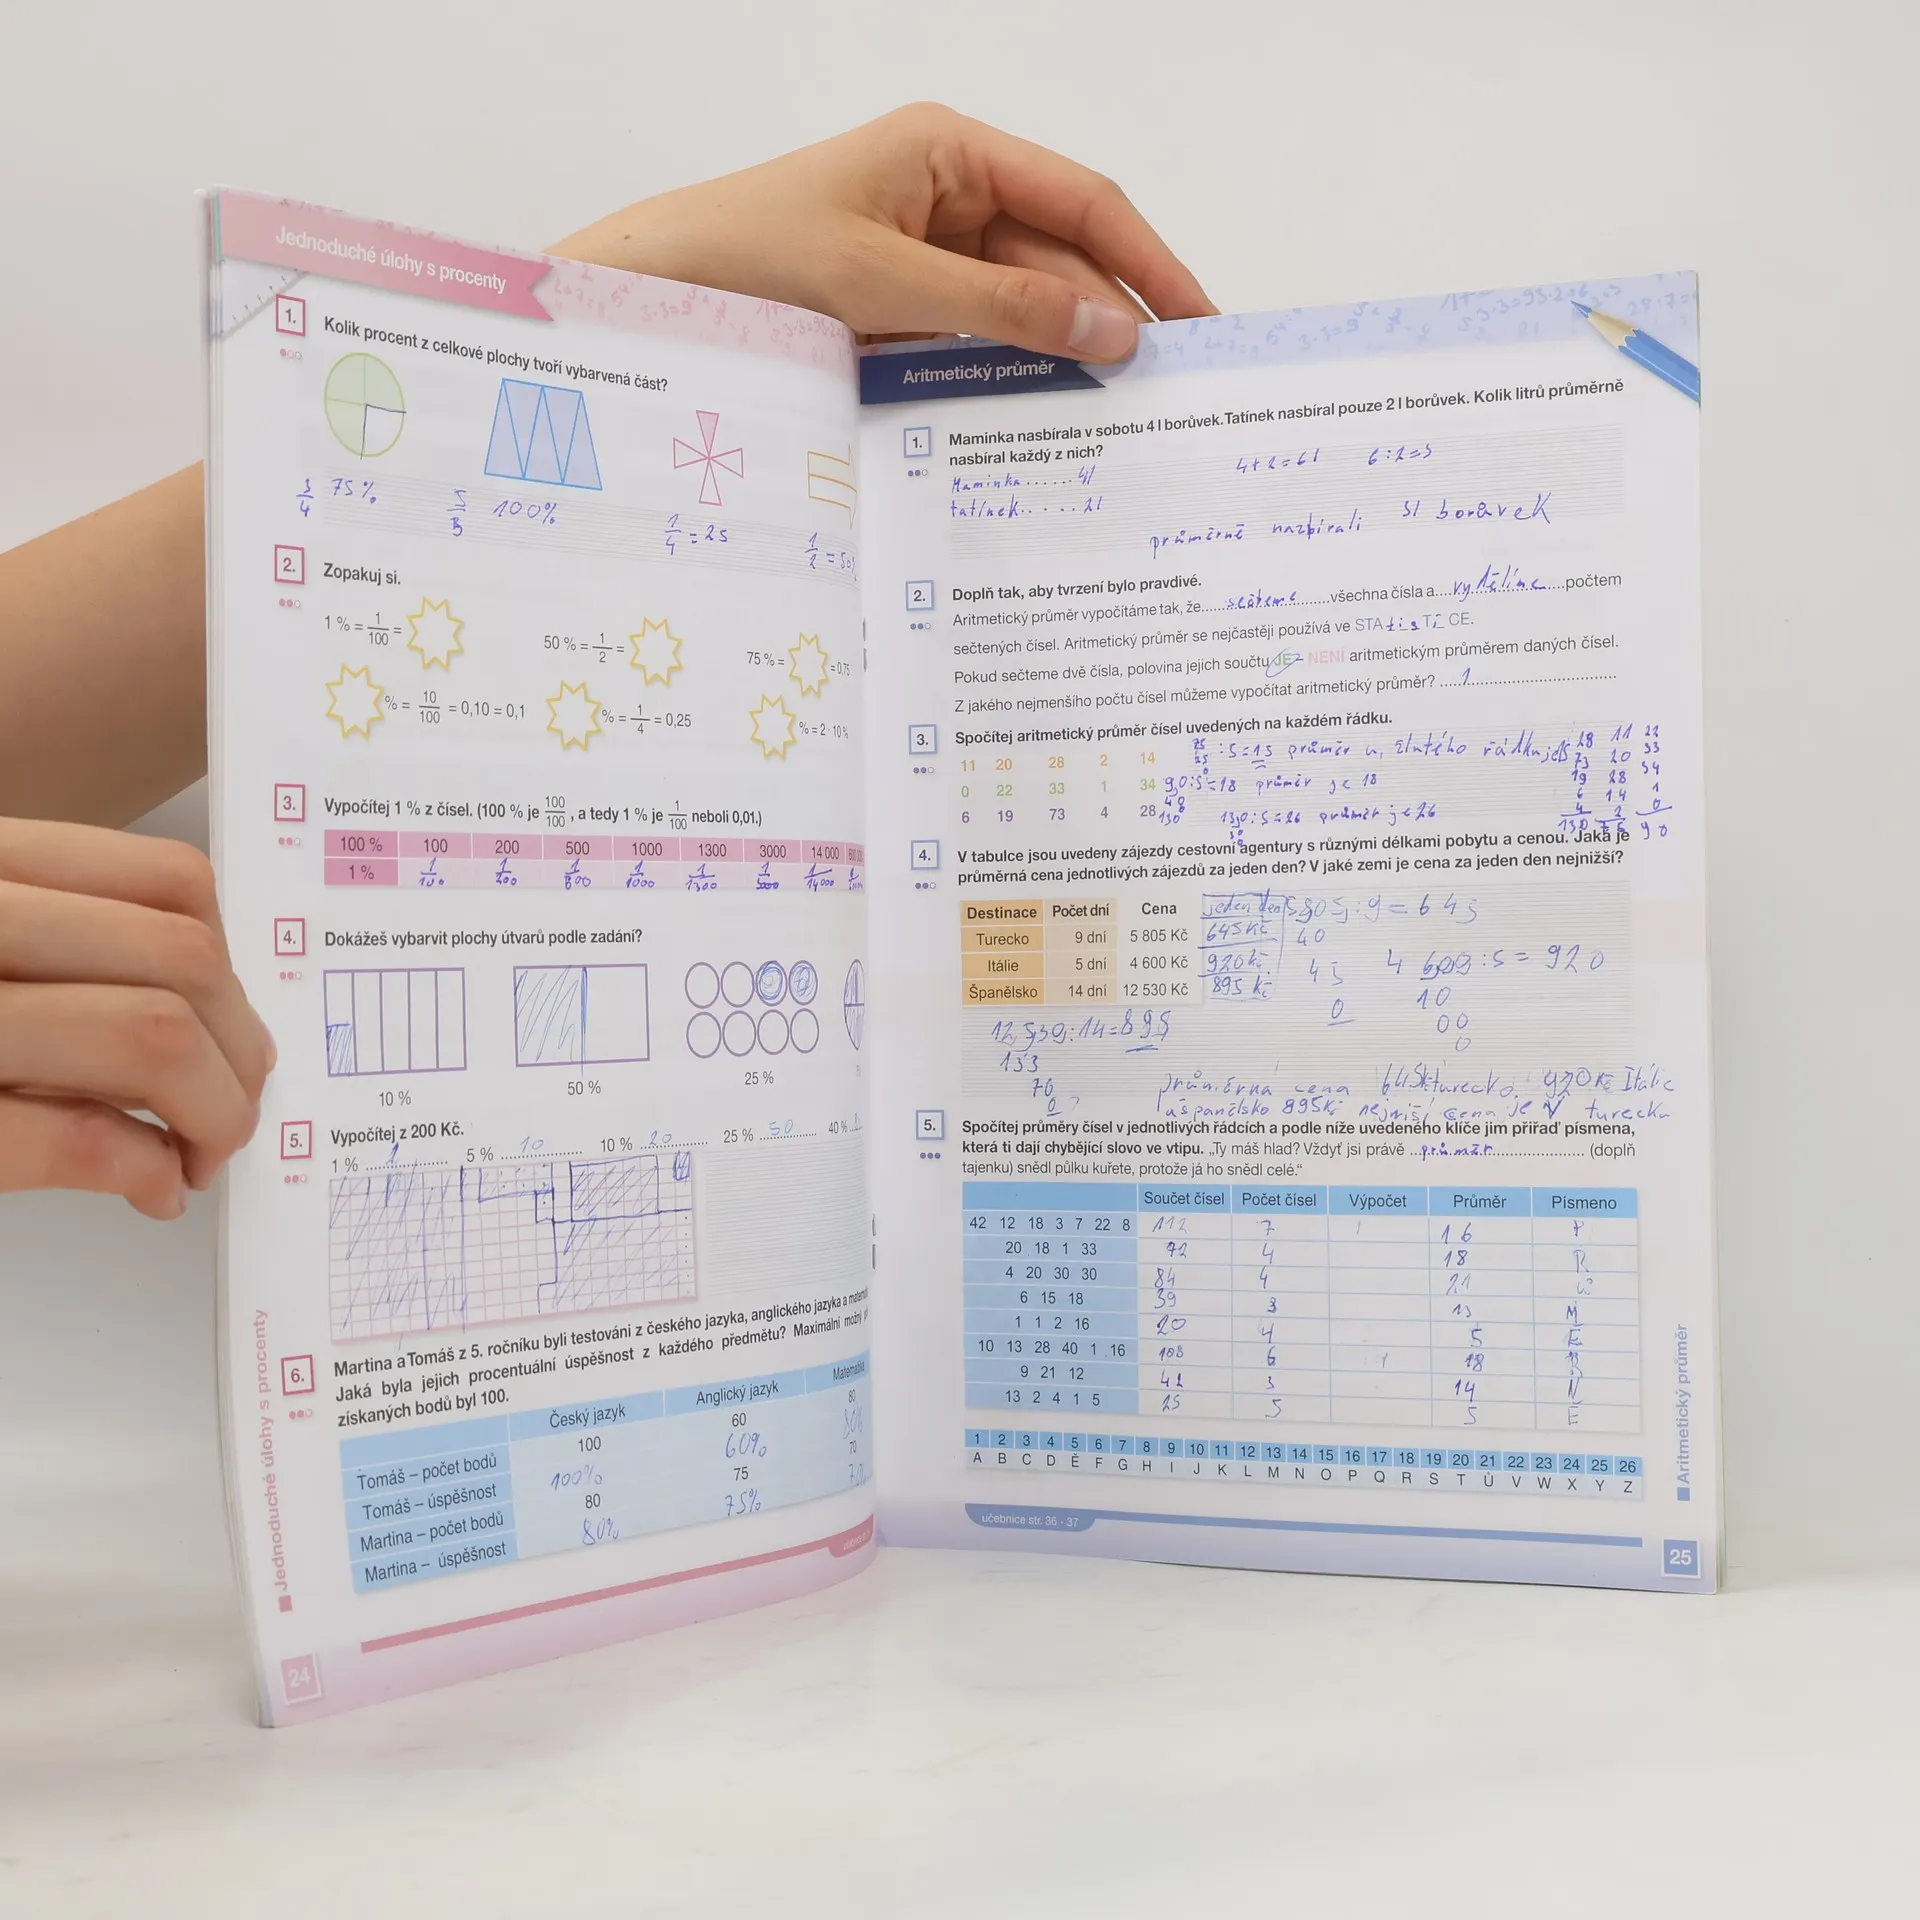 Jednoduché úlohy s procenty
1. Kolik procent z celkové plochy tvoří vybarvená část?
3/4 75% 5/5 100% 1/4 = 25 1/2 = 50%
2. Zopakuj si.
1 % = 1/100 = 50 % = 1/2 = 75 % = = 0,75
% = 10/100 = 0,10 = 0,1 % = 1/4 = 0,25 % = 2 · 10 %
3. Vypočítej 1 % z čísel. (100 % je 100/100, a tedy 1 % je 1/100 neboli 0,01.)
100 % 100 200 500 1000 1300 3000 14 000
1 % 1/100 1/200 1/500 1/1000 1/1300 1/3000 1/14000
4. Dokážeš vybarvit plochy útvarů podle zadání?
10 % 50 % 25 %
5. Vypočítej z 200 Kč.
1 % 1 5 % 10 10 % 20 25 % 50 40 %
6. Martina a Tomáš z 5. ročníku byli testováni z českého jazyka, anglického jazyka a
Jaká byla jejich procentuální úspěšnost z každého předmětu? Maximální možný
získaných bodů byl 100.
Český jazyk Anglický jazyk
Tomáš – počet bodů 100 60 80
Tomáš – úspěšnost 100% 60%
Martina – počet bodů 80 75 70
Martina – úspěšnost 80% 75%
Jednoduché úlohy s procenty
24
Aritmetický průměr
1. Maminka nasbírala v sobotu 4 l borůvek. Tatínek nasbíral pouze 2 l borůvek. Kolik litrů průměrně
nasbíral každý z nich?
4+2=6l 6:2=3
Maminka ...... 4l
tatínek ..... 2l
průměrně nazbírali 3l borůvek
2. Doplň tak, aby tvrzení bylo pravdivé.
Aritmetický průměr vypočítáme tak, že sečteme všechna čísla a vydělíme počtem
sečtených čísel. Aritmetický průměr se nejčastěji používá ve STA tis Ti CE.
Pokud sečteme dvě čísla, polovina jejich součtu JE - NENÍ aritmetickým průměrem daných čísel.
Z jakého nejmenšího počtu čísel můžeme vypočítat aritmetický průměr? 1
3. Spočítej aritmetický průměr čísel uvedených na každém řádku.
11 20 28 2 14 75:5=15 průměr u žlutého řádku je 15
0 22 33 1 34 90:5=18 průměr je 18
6 19 73 4 28 130 130:5=26 průměr je 26
28 11 22
73 20 33
19 28 34
6 14 1
4 2 0
130 75 90
4. V tabulce jsou uvedeny zájezdy cestovní agentury s různými délkami pobytu a cenou. Jaká je
průměrná cena jednotlivých zájezdů za jeden den? V jaké zemi je cena za jeden den nejnižší?
Destinace Počet dní Cena jeden den 5805:9=645
Turecko 9 dní 5 805 Kč 645 Kč 40
Itálie 5 dní 4 600 Kč 920 Kč 45 4600:5=920
Španělsko 14 dní 12 530 Kč 895 Kč 0 10
00
0
12530:14=895
133
70
0
průměrná cena 645Kč turecko, 920Kč Itálie
a španělsko 895Kč nejniší cena je V turecku
5. Spočítej průměry čísel v jednotlivých řádcích a podle níže uvedeného klíče jim přiřaď písmena,
která ti dají chybějící slovo ve vtipu. „Ty máš hlad? Vždyť jsi právě průměr (doplň
tajenku) snědl půlku kuřete, protože já ho snědl celé."
Součet čísel Počet čísel Výpočet Průměr Písmeno
42 12 18 3 7 22 8 112 7 16 P
20 18 1 33 72 4 18 R
4 20 30 30 84 4 21 Ů
6 15 18 39 3 13 M
1 1 2 16 20 4 5 Ě
10 13 28 40 1 16 108 6 18 R
9 21 12 42 3 14 N
13 2 4 1 5 25 5 5 Ě
1 2 3 4 5 6 7 8 9 10 11 12 13 14 15 16 17 18 19 20 21 22 23 24 25 26
A B C D Ě F G H I J K L M N O P Q R S T Ů V W X Y Z
učebnice str. 36 - 37
Aritmetický průměr
25